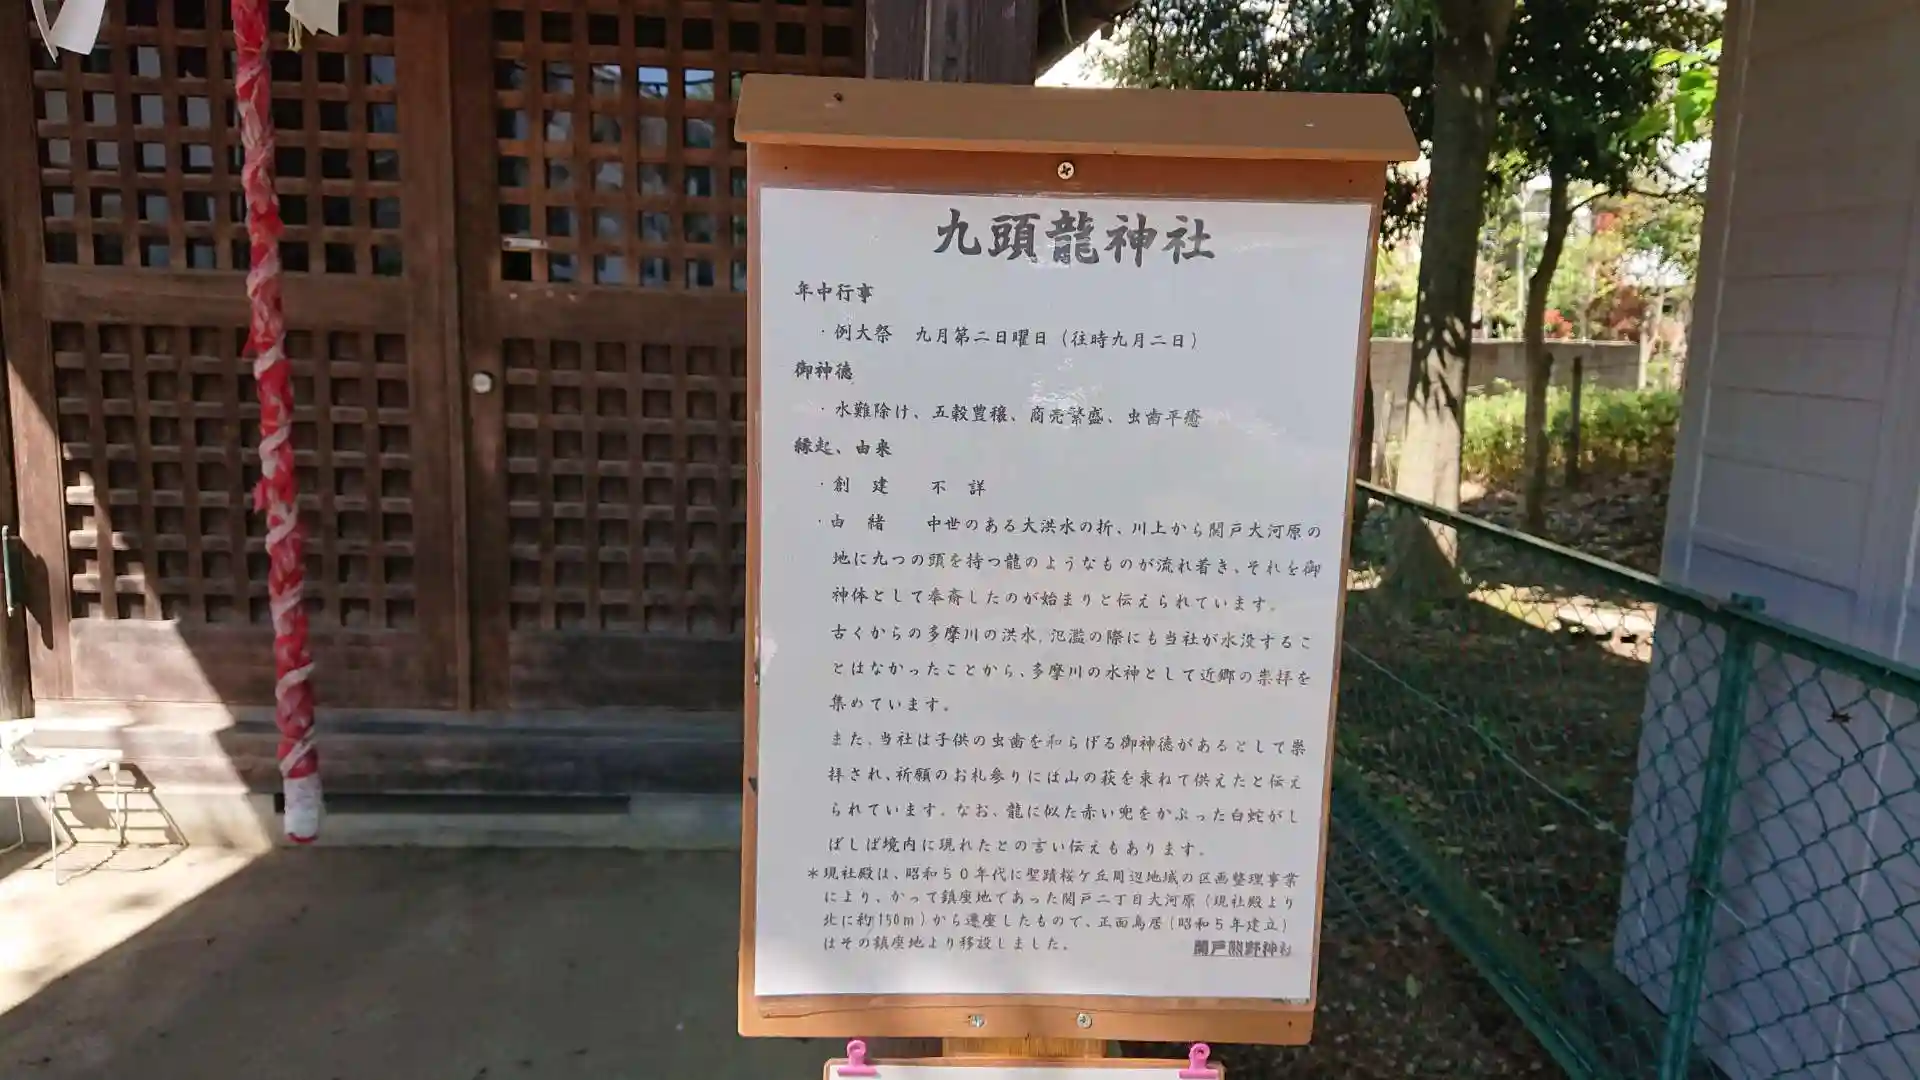 九頭龍神社
年中行事
・例大祭　九月第二日曜日（往時九月二日）
御神徳
・水難除け、五穀豊穣、商売繁盛、虫歯平癒
縁起、由来
・創　建　　不　詳
・由　緒　　中世のある大洪水の折、川上から関戸大河原の
地に九つの頭を持つ龍のようなものが流れ着き、それを御
神体として奉斎したのが始まりと伝えられています。
古くからの多摩川の洪水、氾濫の際にも当社が水没するこ
とはなかったことから、多摩川の水神として近郷の崇拝を
集めています。
また、当社は子供の虫歯を和らげる御神徳があるとして崇
拝され、祈願のお礼参りには山の萩を束ねて供えたと伝え
られています。なお、龍に似た赤い兜をかぶった白蛇がし
ばしば境内に現れたとの言い伝えもあります。
＊現社殿は、昭和５０年代に聖蹟桜ケ丘周辺地域の区画整理事業
により、かって鎮座地であった関戸二丁目大河原（現社殿より
北に約150ｍ）から遷座したもので、正面鳥居（昭和５年建立）
はその鎮座地より移設しました。
関戸熊野神社